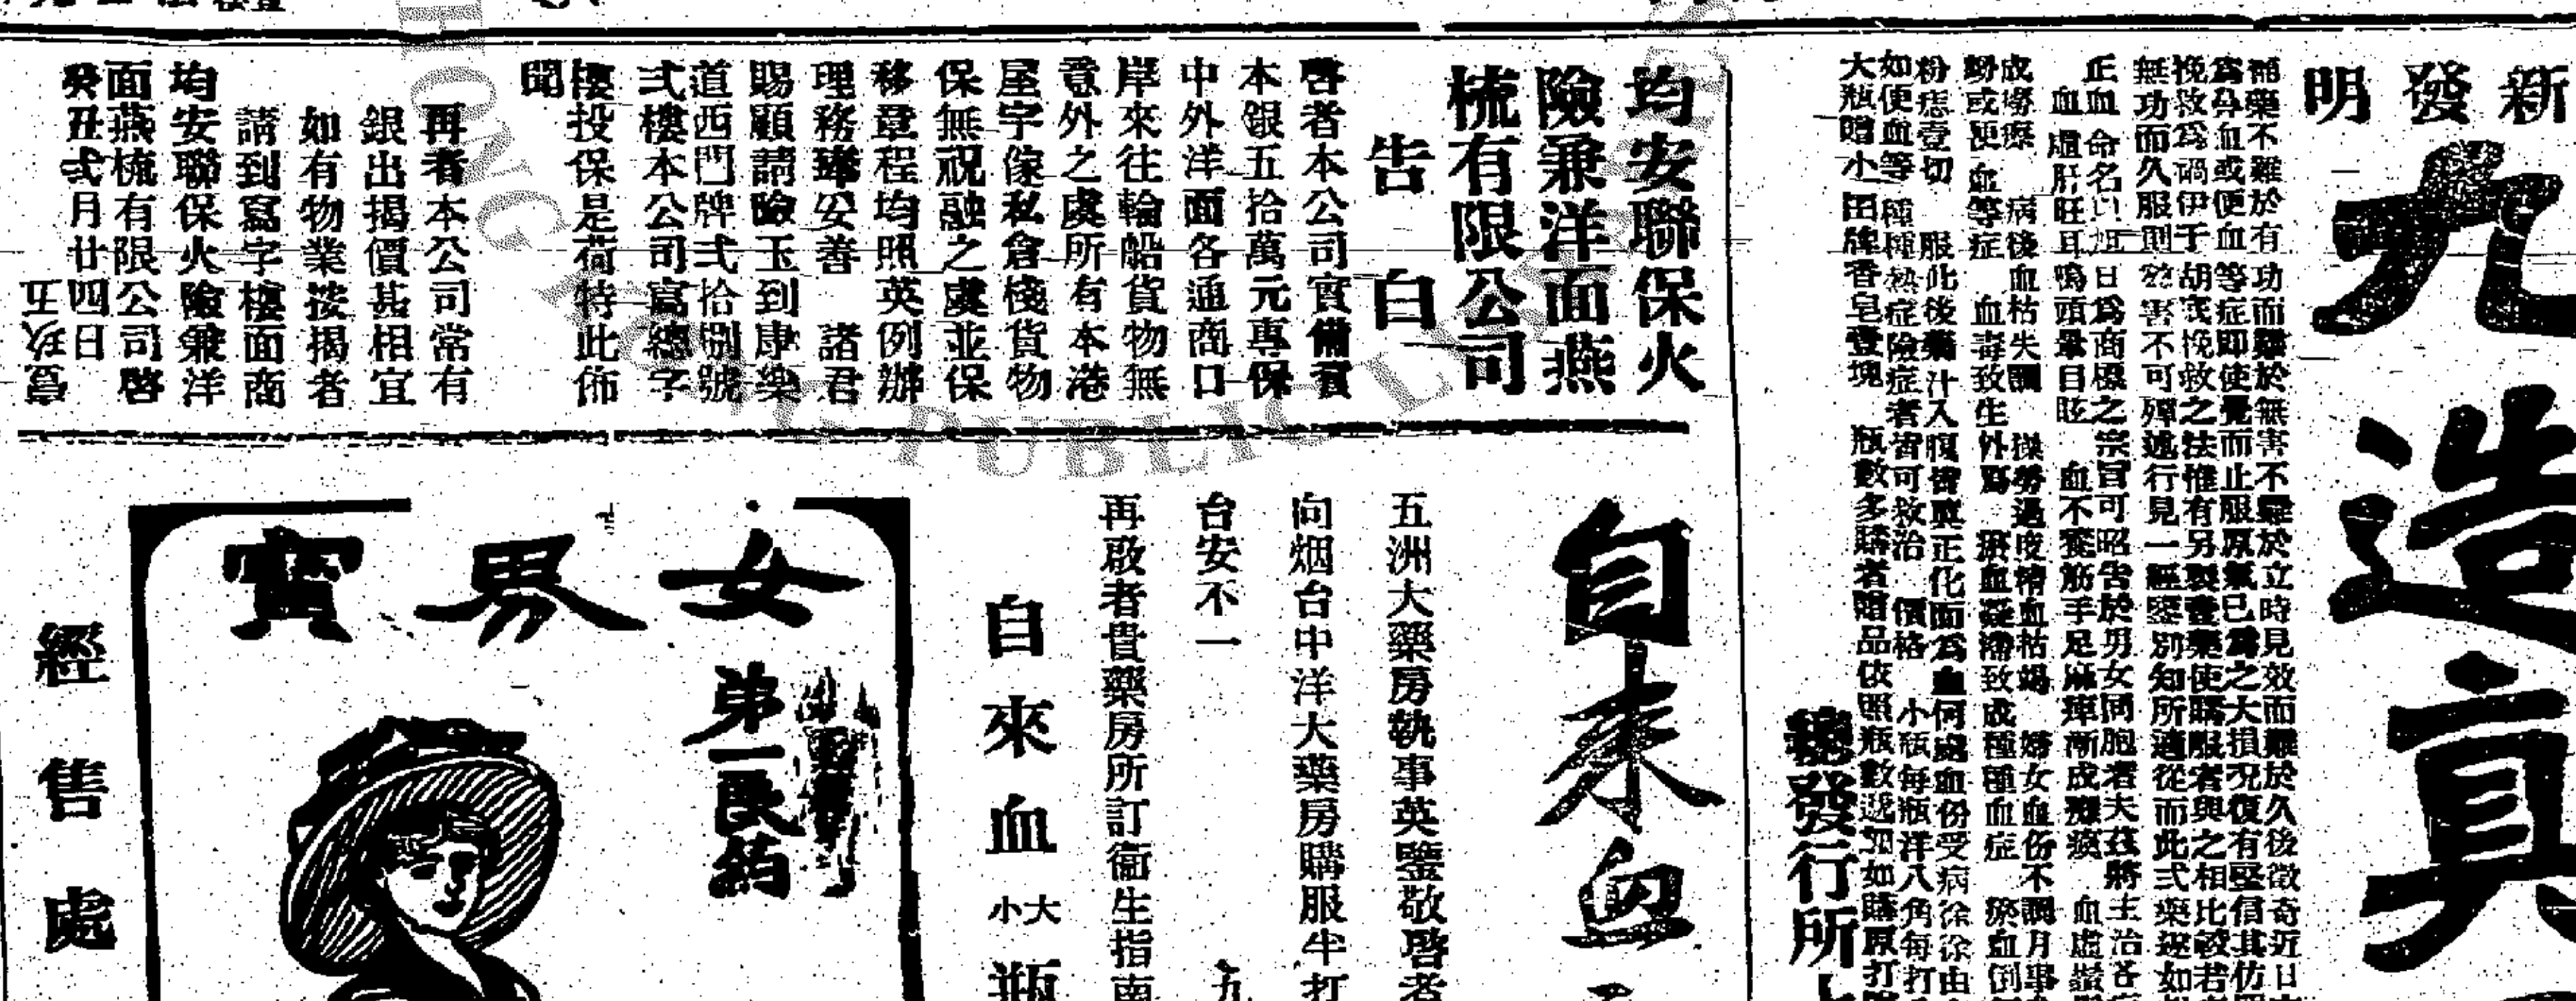 新發明
九造真
補藥不難於有功而難於無害不難於立時見效而難於久後徵奇近日
爲鼻血或便血等症即使覺而止服原氣已爲之大損況復有堅信其仿
挽救爲禍伊于胡底挽救之法惟有另製壹藥使購服者與之相比較若
無功而久服則 害不可殫述行見一經鑒別知所適從而此式藥遂如
正血命名以 日爲商標之宗旨可昭告於男女同胞者夫茲將主治各
血虛肝旺耳鳴頭暈目眩 血不養筋手足麻痺漸成癱瘓 血虛
成癆瘵 病後血枯失調 操勞過度精血枯竭 婦女血份不調月事
或便血等症 血毒致生外瘍 瘀血凝滯致成種種血症 瘀血倒
粉痣壹切 服此後藥汁入腹皆真正化而爲血何處血份受病徐徐由
如便血等 種種熱症險症者皆可救治 價格 小瓶每瓶洋八角每打
大瓶贈小 牌香皂壹塊 瓶數多購者贈品依照瓶數遞加如購原打
總發行所上
均安聯保火
險兼洋面燕
梳有限公司
告白
啓者本公司實備資
本銀五拾萬元專保
中外洋面各通商口
岸來往輪船貨物無
意外之虞所有本港
屋宇傢私倉棧貨物
保無祝融之虞並保
移章程均照英例辦
理務臻妥善 諸君
賜顧請 玉到康樂
道西門牌弍拾捌號
弍樓本公司寫總字
樓投保是荷特此佈
聞
再者本公司常有
銀出揭價甚相宜
如有物業按揭者
請到寫字樓面商
均安聯保火險兼洋
面燕梳有限公司啓
癸丑弍月廿四日
自來血
五洲大藥房執事英鑒敬啓者
向烟台中洋大藥房購服半打
台安不一 九
再啟者貴藥房所訂衞生指南
自來血大小瓶
女界寶
弟一良葯
經售處